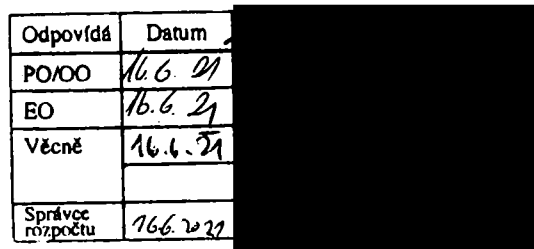 Odpovídá Datum
PO/OO 16.6. 21
EO 16.6. 21
Věcně 16.6.21
Správce
rozpočtu 16.6.2021